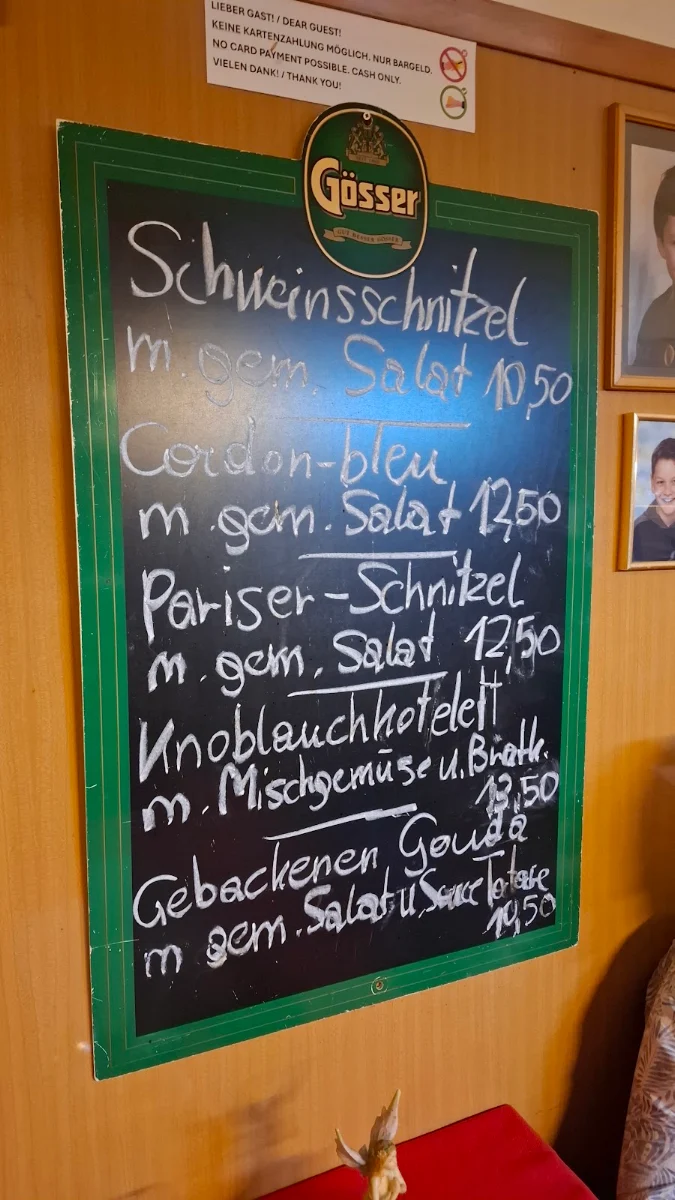 LIEBER GAST! / DEAR GUEST!
KEINE KARTENZAHLUNG MÖGLICH. NUR BARGELD.
NO CARD PAYMENT POSSIBLE. CASH ONLY.
VIELEN DANK! / THANK YOU!
Gösser
GUT BESSER GÖSSER
Schweinsschnitzel
m. gem. Salat 10,50
Cordon-bleu
m. gem. Salat 12,50
Pariser-Schnitzel
m. gem. Salat 12,50
Knoblauchkotelett
m. Mischgemüse u. Bratk.
13,50
Gebackenen Gouda
m gem. Salat u. Sauce Tatare
10,50